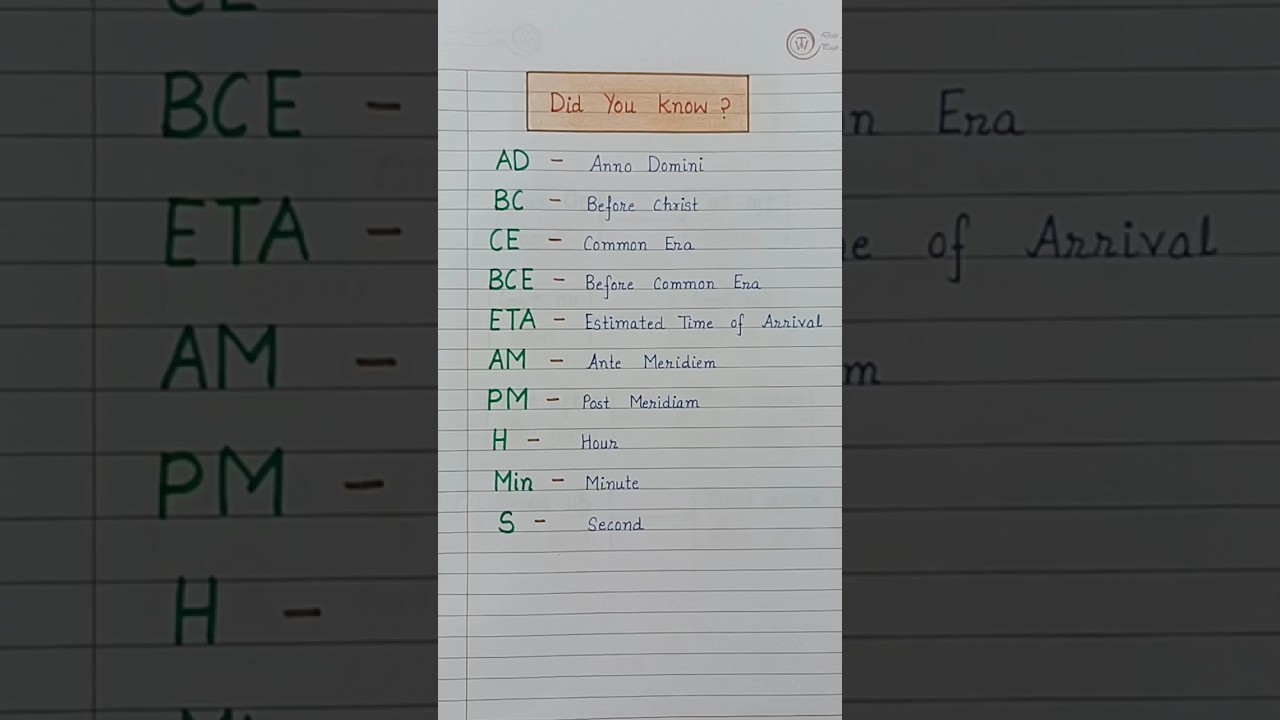 Did You Know?
AD - Anno Domini
BC - Before Christ
CE - Common Era
BCE - Before Common Era
ETA - Estimated Time of Arrival
AM - Ante Meridiem
PM - Post Meridiam
H - Hour
Min - Minute
S - Second